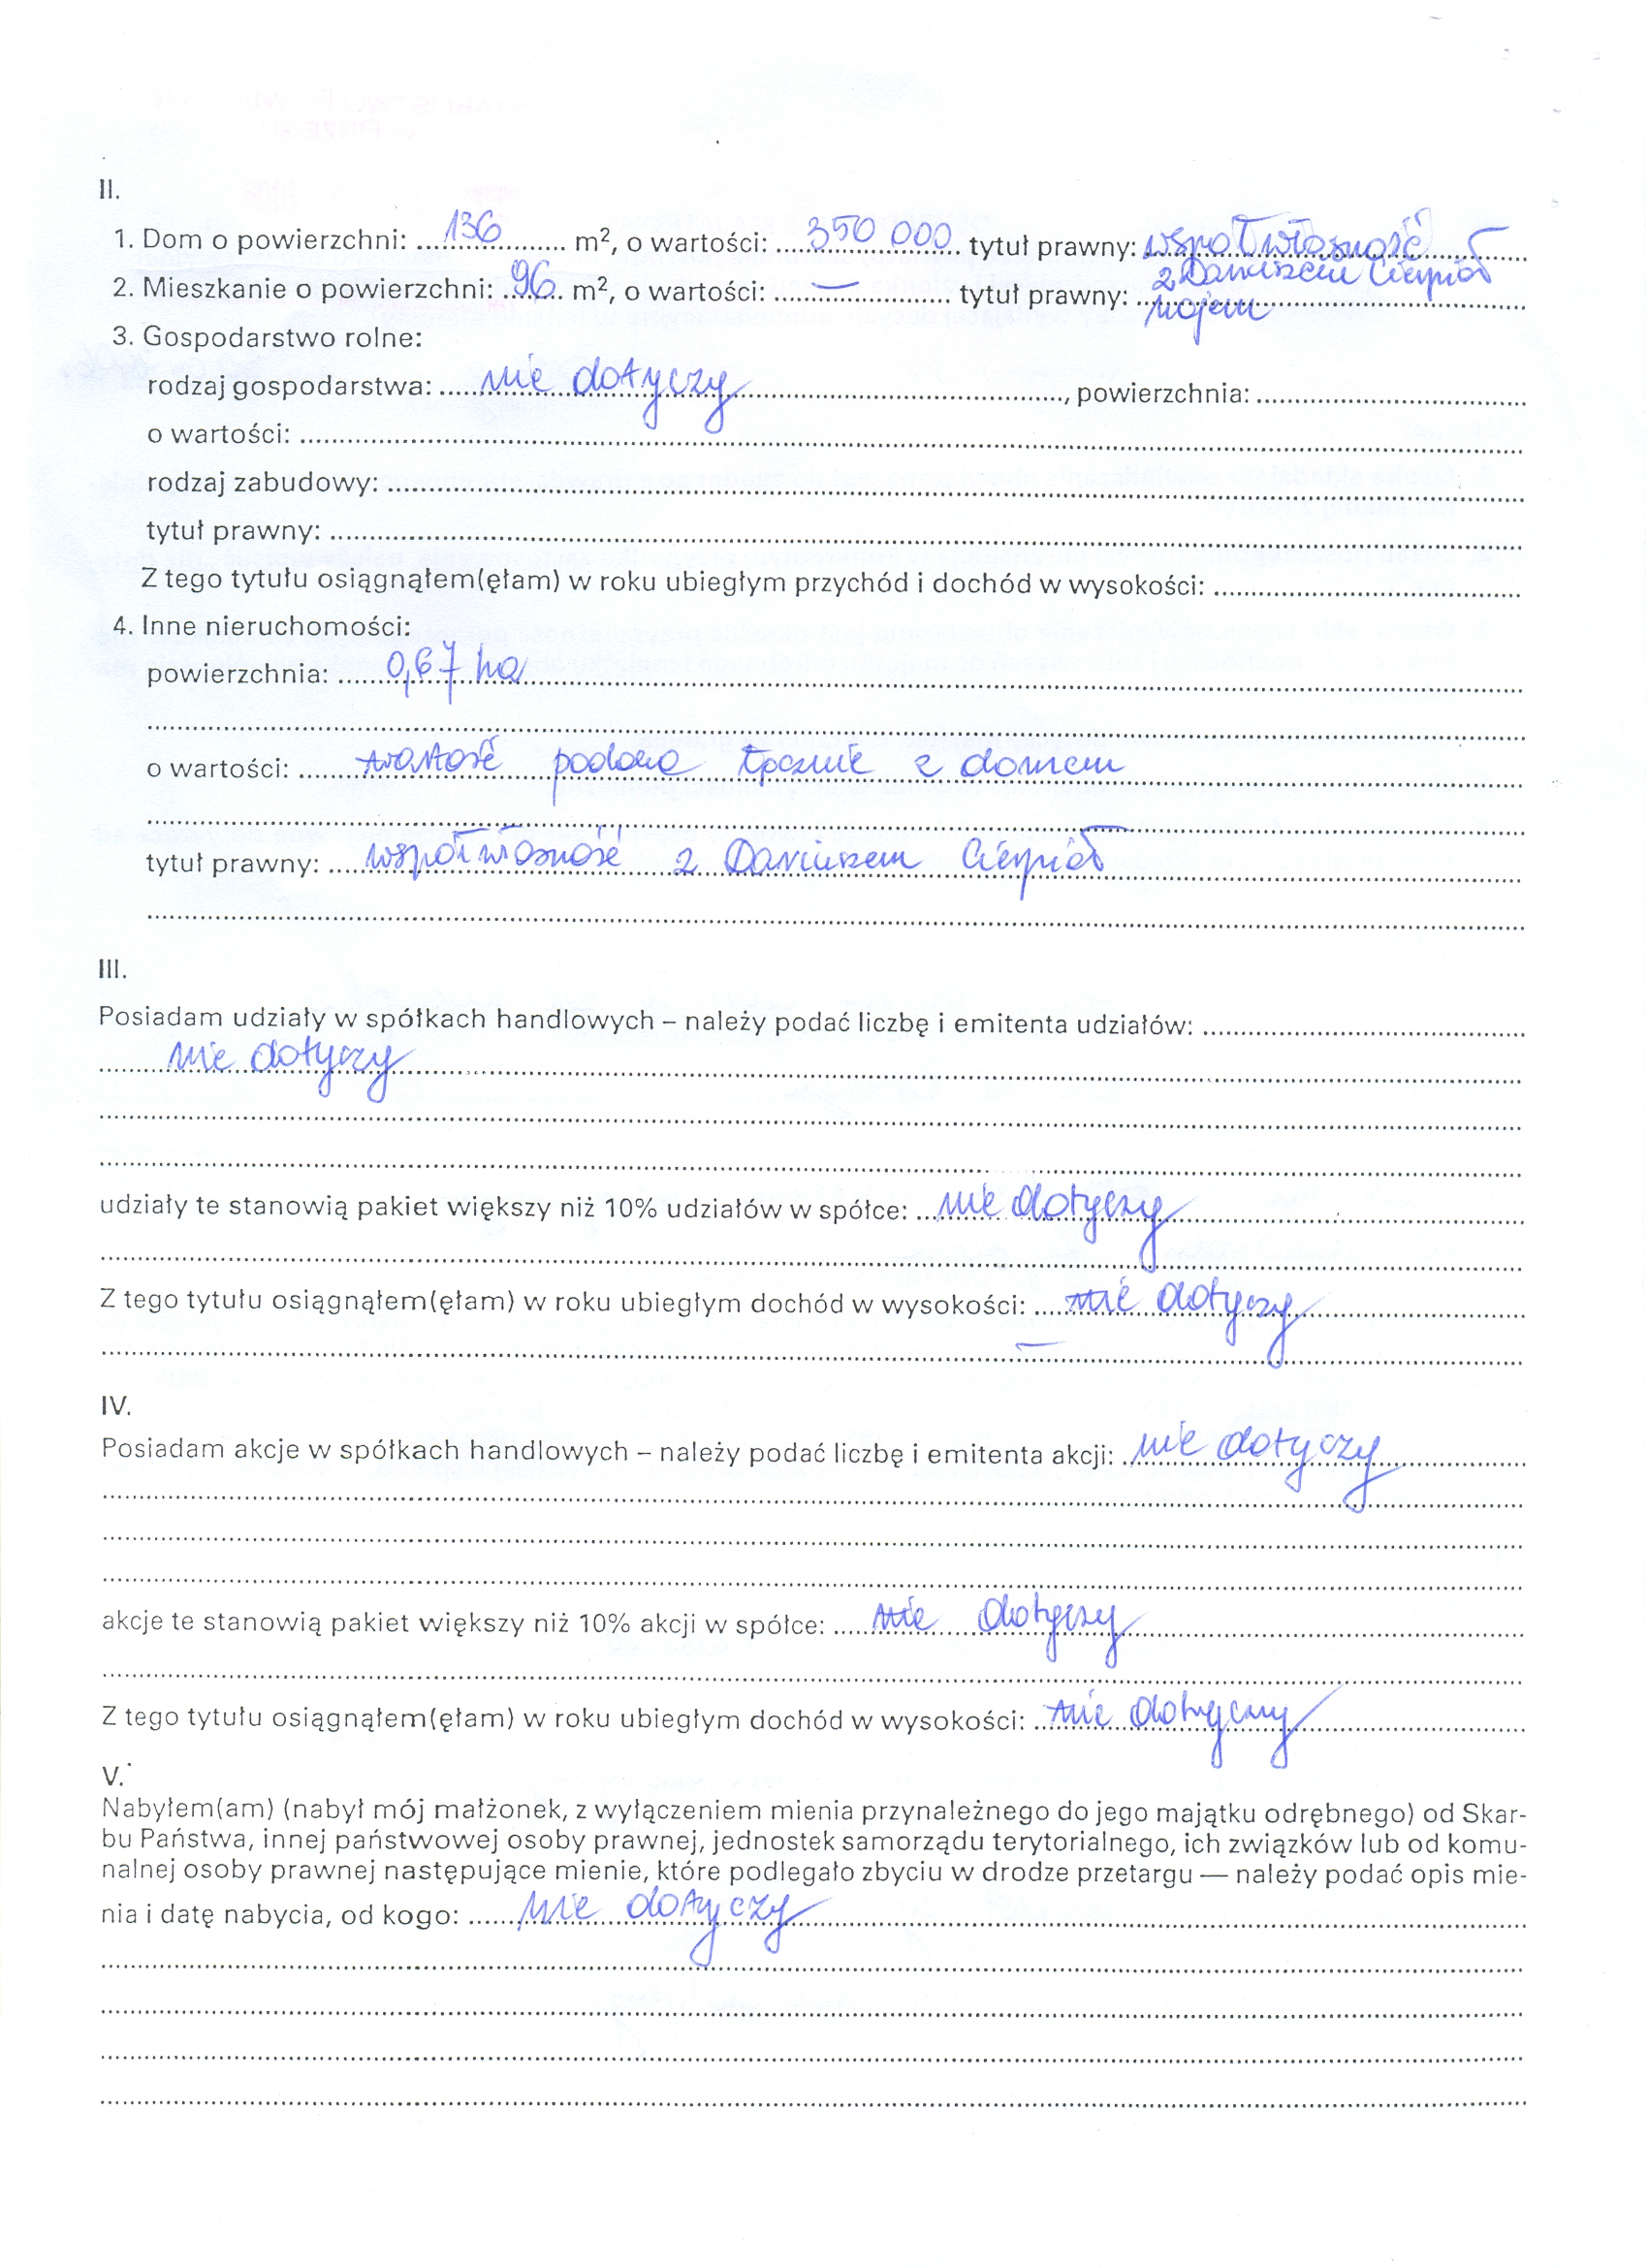 II.
1. Dom o powierzchni: ...136... m², o wartości: ...350 000... tytuł prawny: współwłasność
z Dariuszem Cierpioł
2. Mieszkanie o powierzchni: ...96... m², o wartości: ...—... tytuł prawny: ...najem
3. Gospodarstwo rolne:
rodzaj gospodarstwa: ...nie dotyczy..., powierzchnia: ...
o wartości: ...
rodzaj zabudowy: ...
tytuł prawny: ...
Z tego tytułu osiągnąłem(ęłam) w roku ubiegłym przychód i dochód w wysokości: ...
4. Inne nieruchomości:
powierzchnia: ...0,67 ha...
o wartości: ...wartość podana łącznie z domem...
tytuł prawny: ...współwłasność z Dariuszem Cierpioł...
III.
Posiadam udziały w spółkach handlowych – należy podać liczbę i emitenta udziałów: ...
...nie dotyczy...
udziały te stanowią pakiet większy niż 10% udziałów w spółce: ...nie dotyczy...
Z tego tytułu osiągnąłem(ęłam) w roku ubiegłym dochód w wysokości: ...nie dotyczy...
IV.
Posiadam akcje w spółkach handlowych – należy podać liczbę i emitenta akcji: ...nie dotyczy...
akcje te stanowią pakiet większy niż 10% akcji w spółce: ...nie dotyczy...
Z tego tytułu osiągnąłem(ęłam) w roku ubiegłym dochód w wysokości: ...nie dotyczy...
V.
Nabyłem(am) (nabył mój małżonek, z wyłączeniem mienia przynależnego do jego majątku odrębnego) od Skar-
bu Państwa, innej państwowej osoby prawnej, jednostek samorządu terytorialnego, ich związków lub od komu-
nalnej osoby prawnej następujące mienie, które podlegało zbyciu w drodze przetargu — należy podać opis mie-
nia i datę nabycia, od kogo: ...nie dotyczy...